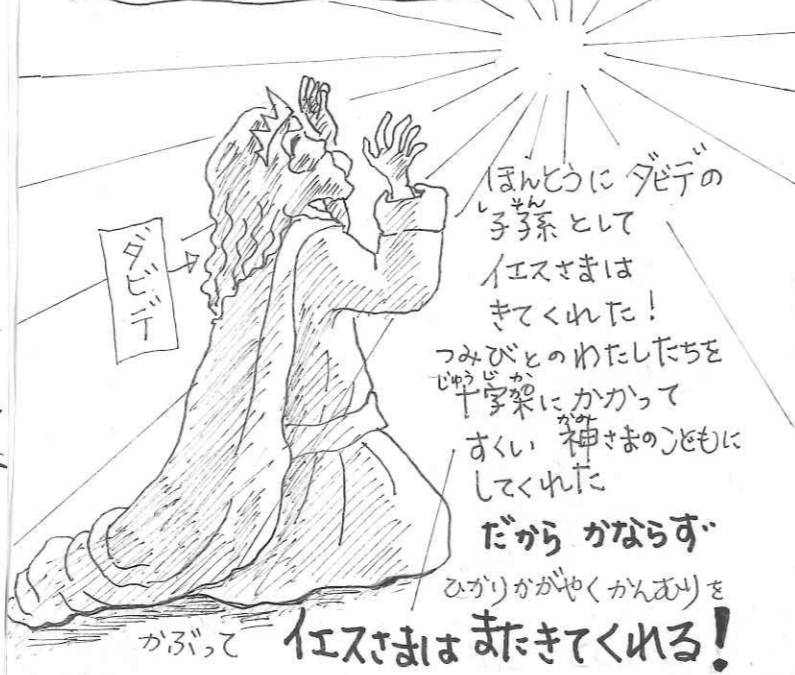 ダビデ
ほんとうに ダビデの
しそん
子孫 として
イエスさまは
きてくれた!
つみびとのわたしたちを
じゅうじか
十字架に かかって
かみ
すくい 神さまのこどもに
してくれた
だから かならず
ひかりかがやくかんむりを
かぶって イエスさまは またきてくれる!